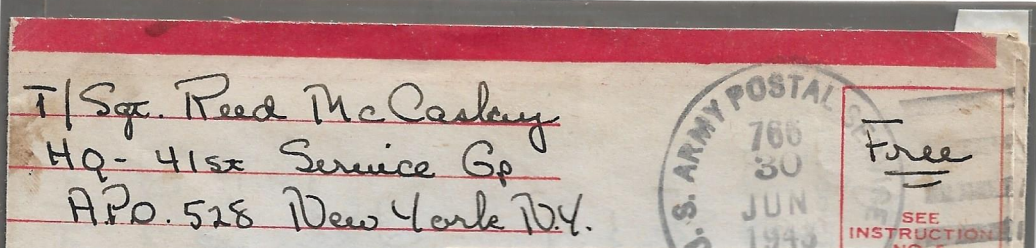 T/Sgt. Reed McCaskey
HQ - 41st Service Gp
A.P.O. 528 New York N.Y.
U.S. ARMY POSTAL
766
30
JUN
1943
Free
SEE
INSTRUCTION